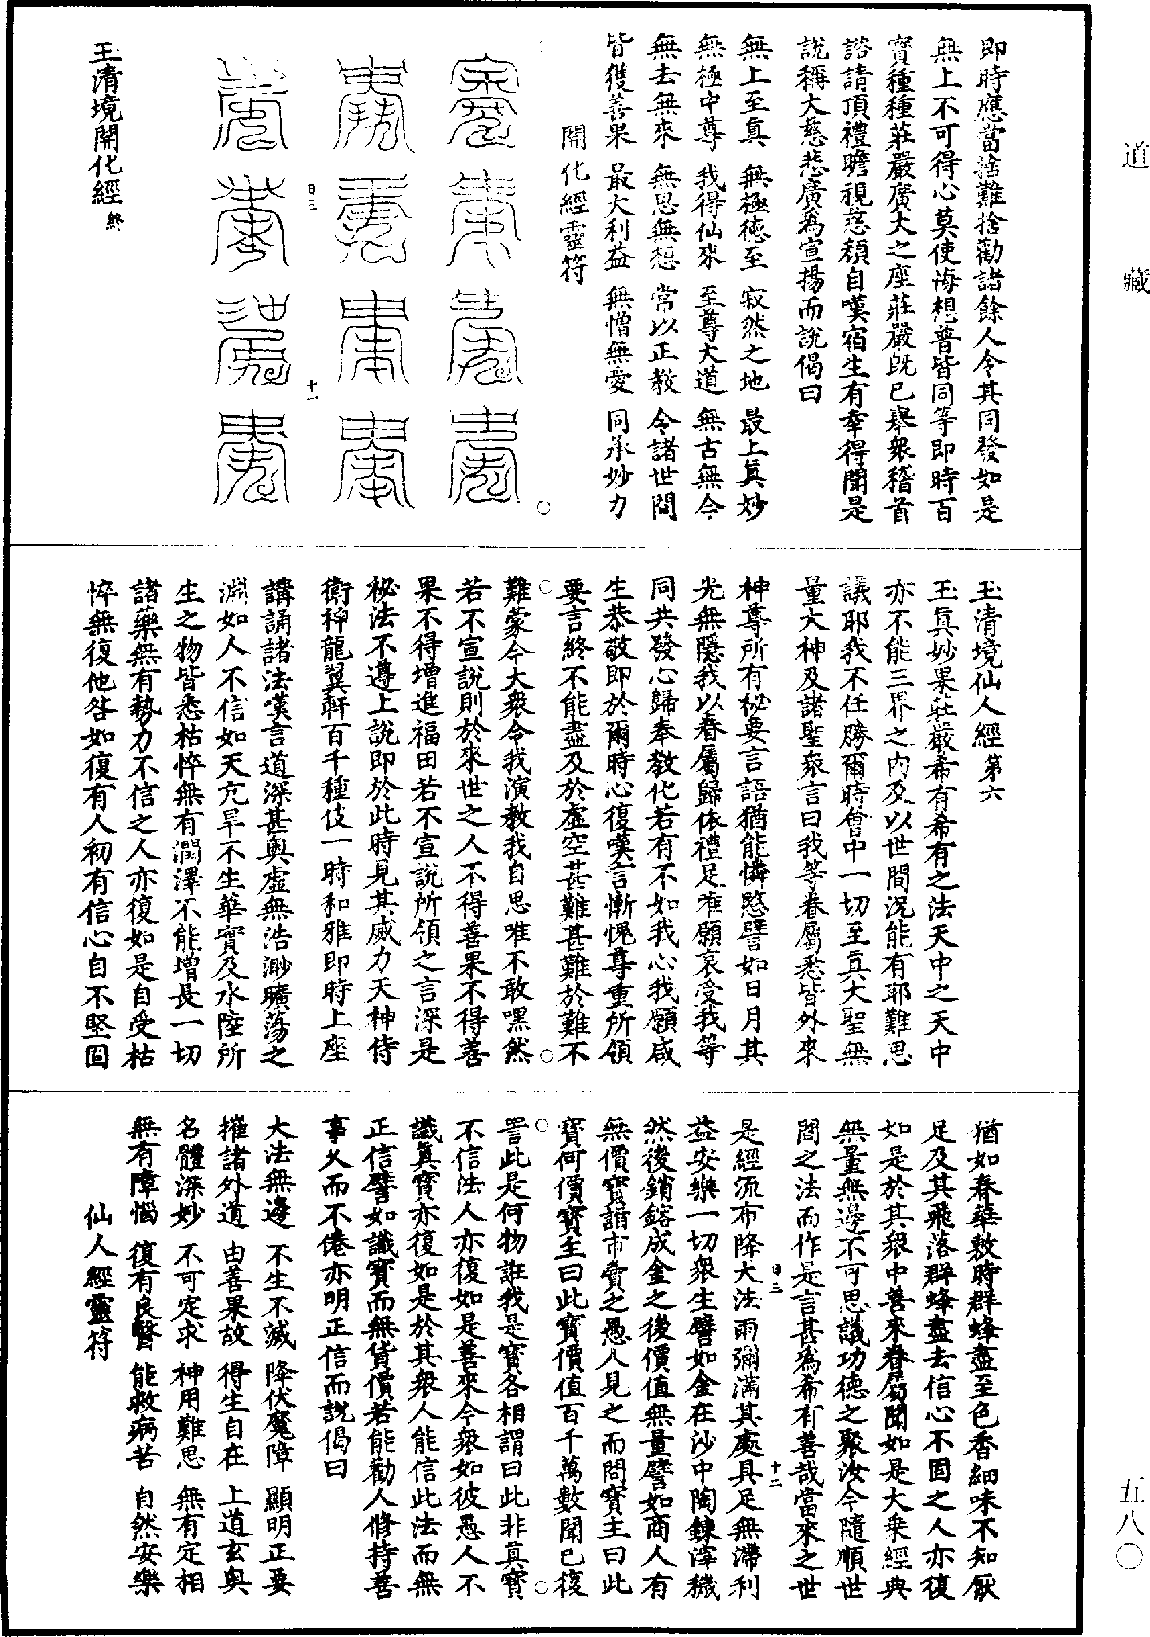 道藏
五八〇
即時應當捨難捨勸諸餘人令其同發如是
無上不可得心莫使海想普皆同等即時百
寳種種莊嚴廣大之座莊嚴既已舉衆稽首
諮請頂禮瞻視慈顔自嘆宿生有幸得聞是
說稱大慈悲廣爲宣揚而說偈曰
無上至真 無極德至 寂然之地 最上真妙
無極中尊 我得仙來 至尊大道 無古無今
無去無來 無思無想 常以正教 令諸世間
皆獲善果 最大利益 無憎無愛 同承妙力
開化經靈符
四三
十一
玉清境開化經終
玉清境仙人經第六
玉真妙果莊嚴希有希有之法天中之天中
亦不能三界之內及以世間況能有耶難思
議耶我不任勝爾時會中一切至真大聖無
量大神及諸聖衆言曰我等眷屬悉皆外來
神尊所有秘要言語猶能憐愍譬如日月其
光無隱我以眷屬歸依禮足唯願哀受我等
同共發心歸奉教化若有不如我心我願咸
生恭敬即於爾時心復嘆言慚愧尊重所領
要言終不能盡及於虛空甚難甚難於難不
難蒙今大衆令我演教我自思唯不敢嘿然
若不宣說則於來世之人不得善果不得善
果不得增進福田若不宣說所領之言深是
秘法不遵上說即於此時見其威力天神侍
衛神龍翼軒百千種伎一時和雅即時上座
講誦諸法嘆言道深甚奧虛無浩渺曠蕩之
淵如人不信如天亢旱不生華實及水陸所
生之物皆悉枯悴無有潤澤不能增長一切
諸藥無有勢力不信之人亦復如是自受枯
悴無復他咎如復有人初有信心自不堅固
猶如春華敷時群蜂盡至色香細味不知厭
足及其飛落群蜂盡去信心不固之人亦復
如是於其衆中善來眷屬聞如是大乘經典
無量無邊不可思議功德之聚汝今隨順世
間之法而作是言甚爲希有善哉當來之世
是經流布降大法雨彌滿其處具足無滯利
益安樂一切衆生譬如金在沙中陶鍊滓穢
然後銷鎔成金之後價值無量譬如商人有
無價寳詣市賣之愚人見之而問寳主曰此
寳何價寳主曰此寳價值百千萬數聞已復
詈此是何物誑我是寳各相謂曰此非真寳
不信法人亦復如是善來今衆如彼愚人不
識真寳亦復如是於其衆人能信此法而無
正信譬如識寳而無貨價若能勸人修持善
事久而不倦亦明正信而說偈曰
大法無邊 不生不滅 降伏魔障 顯明正要
摧諸外道 由善果故 得生自在 上道玄奧
名體深妙 不可定求 神用難思 無有定相
無有障惱 復有良醫 能救病苦 自然安樂
仙人經靈符
四三
十二